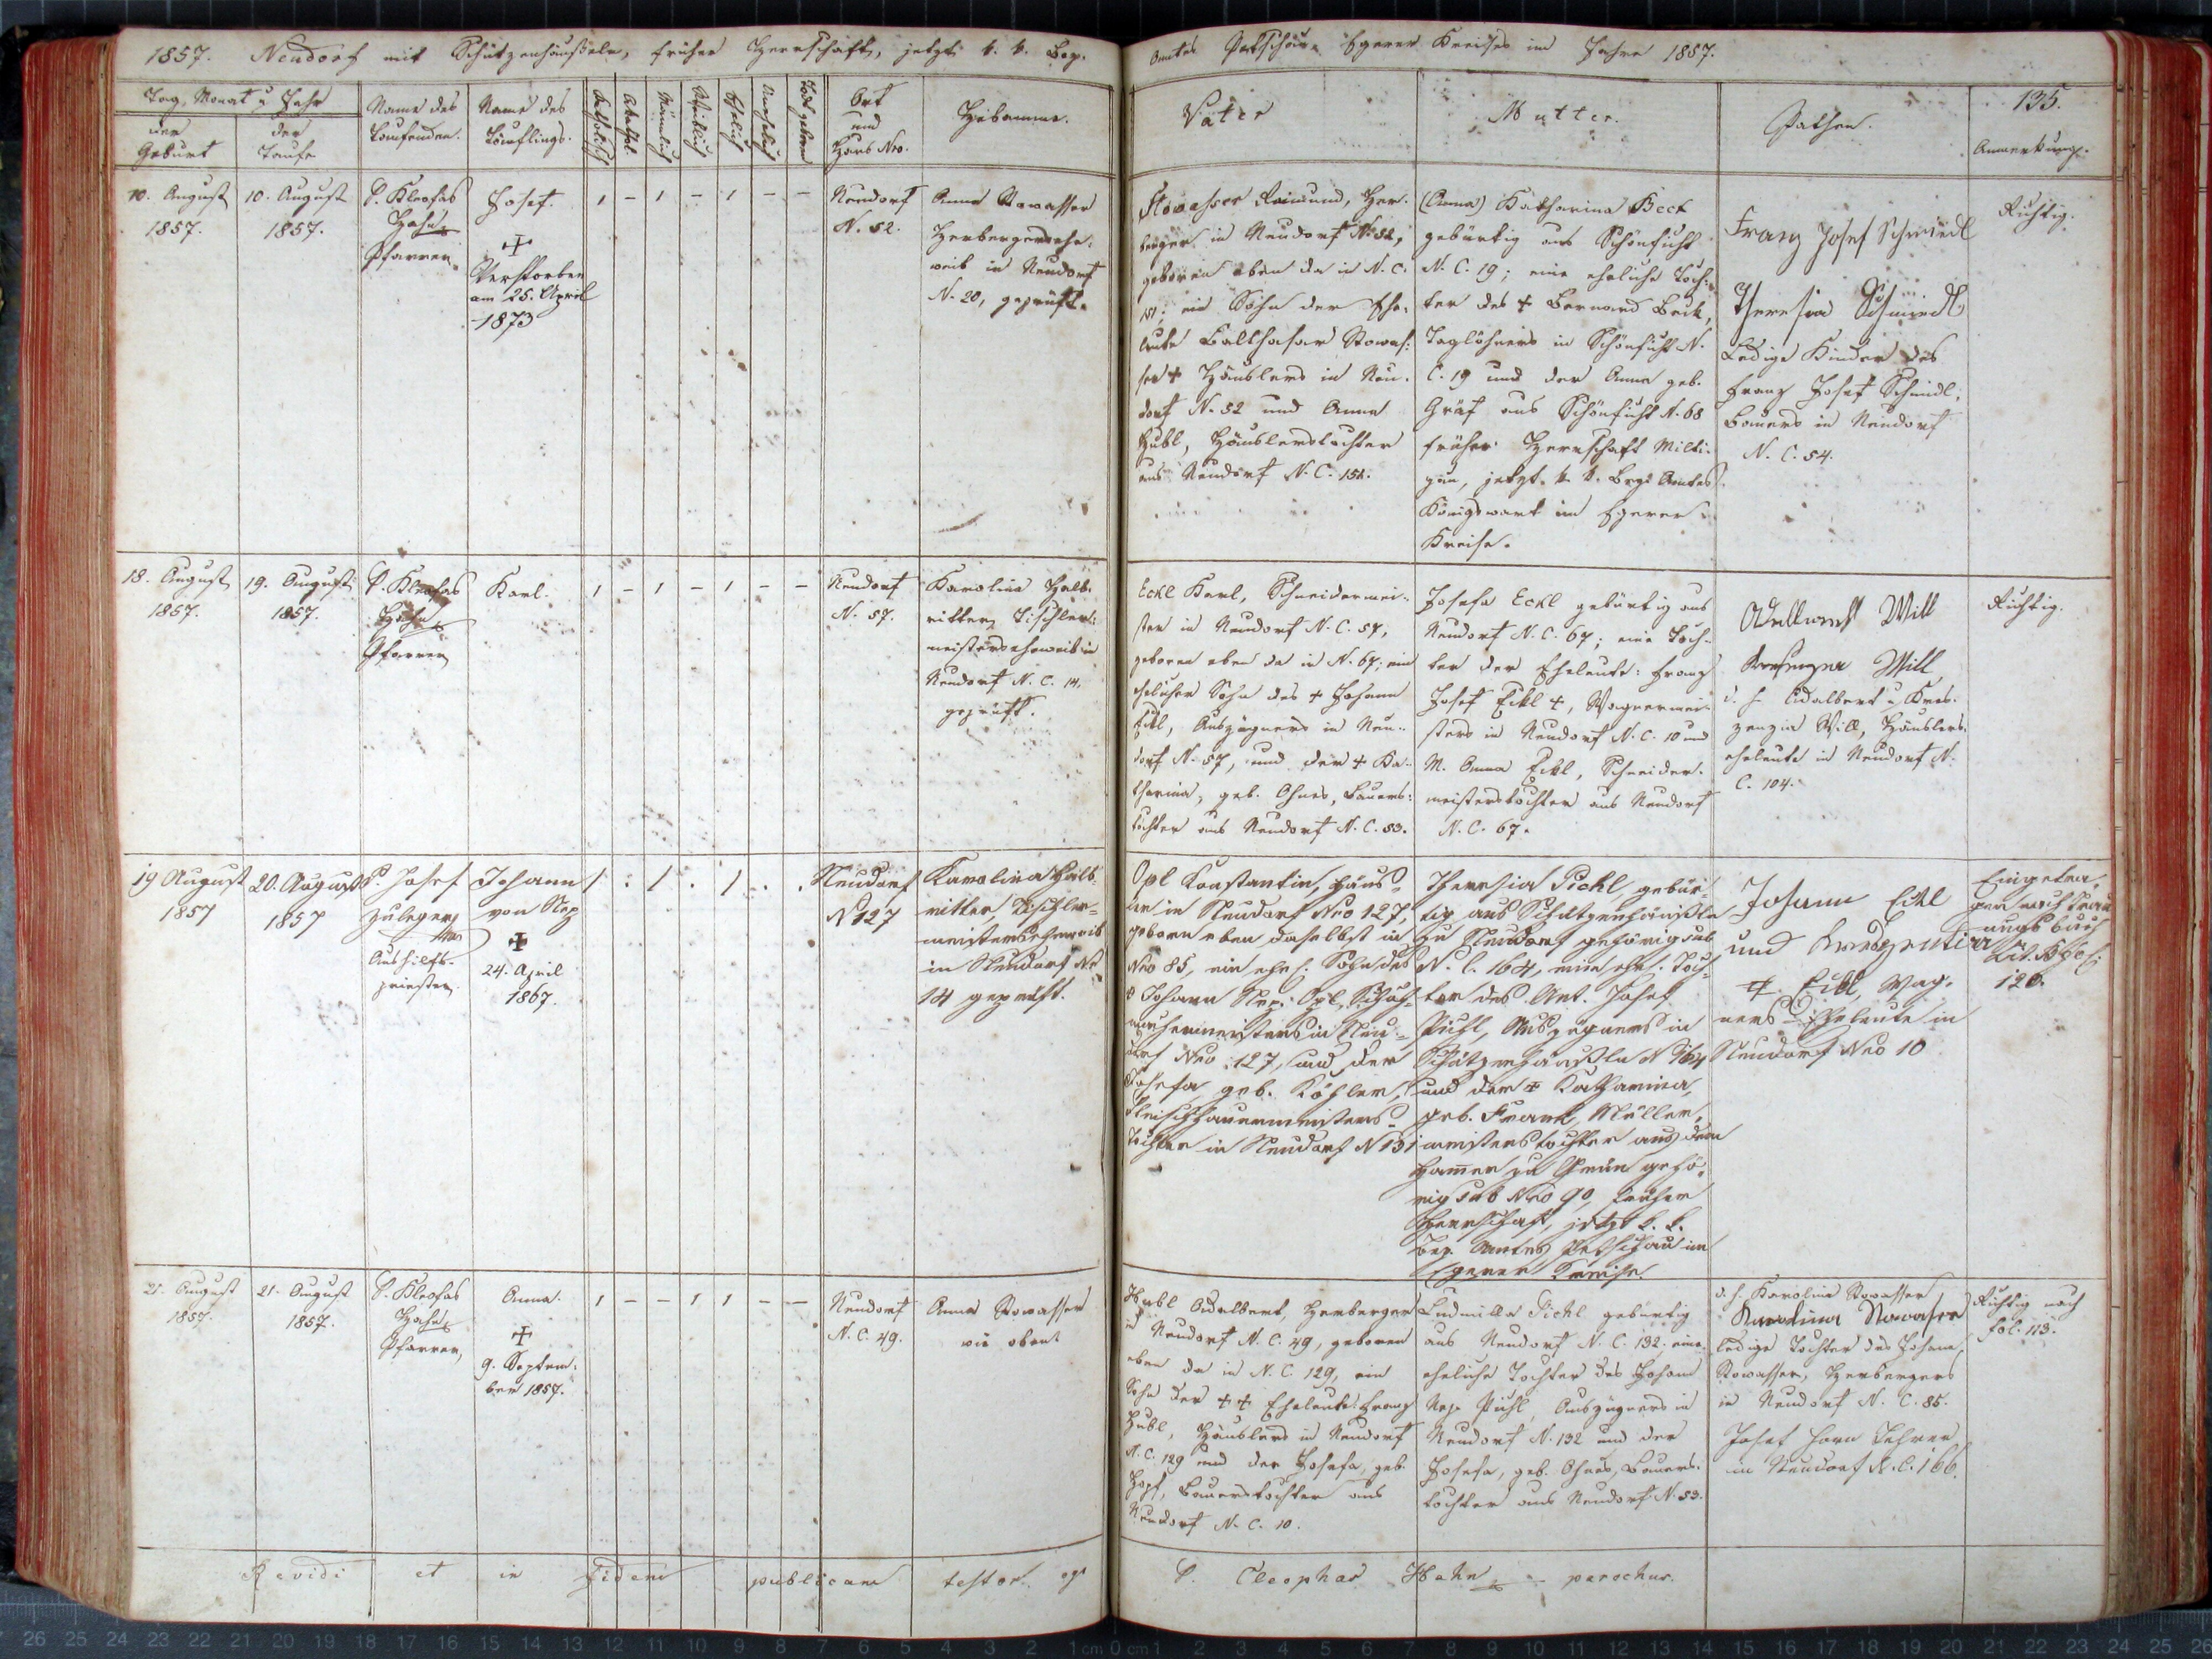 1857. Neudorf mit Schützenhäußeln, früher Herrschaft, jetzt k. k. Bez.
Amtes Petschau Egerer Kreises im Jahre 1857.
135.
Tag, Monat u. Jahr
der Geburt
der Taufe
Name des Taufenden.
Name des Täuflings.
Katholisch
Akathol.
Männlich
Weiblich
Ehelich
Unehelich
Todtgeboren
Ort
und
Haus Nro.
Hebamme.
Vater
Mutter.
Pathen.
Anmerkung.
10. August
1857.
10. August
1857.
P. Kleofas
Hahn
Pfarrer
Josef.
✝
Verstorben
am 25. April
1873
1 - 1 - 1 - -
Neudorf
N. 52.
Anna Stowasser
Herbergersehe-
weib in Neudorf
N. 20, geprüft.
Stowasser Raimund, Her-
berger in Neudorf N. 52,
geboren eben da in N. C.
151; ein Sohn der Ehe-
leute Balthasar Stowas-
ser ✝ Häuslers in Neu-
dorf N. 52 und Anna
Hubl, Häuslerstochter
aus Neudorf N. C. 151.
(Anna) Katharina Beck
gebürtig aus Schönficht
N. C. 19; eine eheliche Toch-
ter des ✝ Bernard Beck,
Taglöhners in Schönficht N.
C. 19 und der Anna geb.
Gräf aus Schönficht N. 68
früher Herrschaft Milti-
gau, jetzt k. k. Bez. Amtes
Königswart im Egerer
Kreise.
Franz Josef Schmiedl
Theresia Schmiedl
Ledige Kinder des
Franz Josef Schmidl,
Bauers in Neudorf
N. C. 54.
Richtig.
18. August
1857.
19. August
1857.
P. Kleofas
Hahn
Pfarrer
Karl.
1 - 1 - 1 - -
Neudorf
N. 57.
Karolina Halb-
ritter, Tischler-
meisterseheweib in
Neudorf N. C. 14,
geprüft.
Eckl Karl, Schneidermei-
ster in Neudorf N. C. 57,
geboren eben da in N. 67; ein
ehelicher Sohn des ✝ Johann
Eckl, Auszügners in Neu-
dorf N. 57, und der ✝ Ka-
tharina, geb. Ohnes, Bauers-
tochter aus Neudorf N. C. 53.
Josefa Eckl gebürtig aus
Neudorf N. C. 67; eine Toch-
ter der Eheleute: Franz
Josef Eckl ✝, Wagnermei-
sters in Neudorf N. C. 10 und
M. Anna Eckl, Schneider-
meisterstochter aus Neudorf
N. C. 67.
Adalbert Will
Kreszenzia Will
d. h. Adalbert u. Kres-
zenzia Will, Häuslers-
eheleute in Neudorf N.
C. 104.
Richtig.
19 August
1857
20. August
1857
P. Josef
Zuleger
Aushilfs-
priester
Johann
von Nep
✝
24. April
1867.
1 . 1 . 1 . .
Neudorf
N 127
Karolina Halb-
ritter, Tischler-
meisterseheweib
in Neudorf No
14 geprüft.
Opl Konstantin, Häus-
ler in Neudorf Nro 127,
geboren eben daselbst in
Nro 85, ein ehel. Sohn des
Johann Nep. Opl, Schuh-
machermeisters in Neu-
dorf Nro 127, und der
Josefa, geb. Köhler,
Fleischhauermeisters-
tochter in Neudorf N 131
Theresia Pichl gebür-
tig aus Schützenhäußln
zu Neudorf gehörig sub
N. C. 164, eine ehel. Toch-
ter des Ant. Josef
Pichl, Auszügners in
Schützenhäußln N 164
und der ✝ Katharina,
geb. Frank, Müller-
meisterstochter aus dem
Hamer zu Grün gehö-
rig sub Nro 90, früher
Herrschaft, jetzt k. k.
Bez. Amtes Petschau im
Egerer Kreise.
Johann Eckl
und Kreszentia
Eckl, Wag-
ners Eheleute in
Neudorf Nro 10
Eingetra-
gen nach Trau-
ungsbuch
fol.
126.
21. August
1857.
21. August
1857.
P. Kleofas
Hahn
Pfarrer
Anna.
✝
9. Septem-
ber 1857.
1 - - 1 1 - -
Neudorf
N. C. 49.
Anna Stowasser
wie oben
Hubl Adalbert, Herberger
in Neudorf N. C. 49, geboren
eben da in N. C. 129, ein
Sohn der ✝✝ Eheleute: Franz
Hubl, Häuslers in Neudorf
N. C. 129 und der Josefa, geb.
Hopf, Bauerstochter aus
Neudorf N. C. 10.
Ludmilla Pichl gebürtig
aus Neudorf N. C. 132. eine
eheliche Tochter des Johann
Nep. Pichl, Auszügners in
Neudorf N. 132 und der
Josefa, geb. Ohnes, Bauers-
tochter aus Neudorf N. 53.
d. h. Karolina Stowasser
Karolina Stowasser
ledige Tochter des Johann
Stowasser, Herbergers
in Neudorf N. C. 85.
Josef Horn Lehrer
in Neudorf N. C. 166.
Richtig nach
fol. 113.
Revidi et in fidem publicam testor ego
P. Cleophas Hahn parochus.